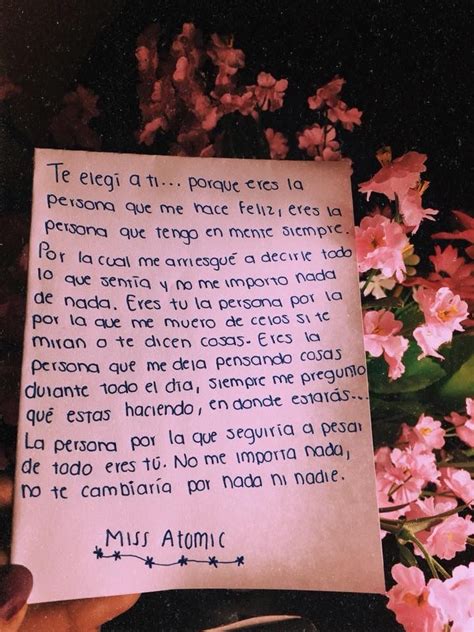 Te elegí a ti... porque eres la
persona que me hace feliz, eres la
persona que tengo en mente siempre.
Por la cual me arriesgué a decirle todo
lo que sentía y no me importo nada
de nada. Eres tu la persona por la
por la que me muero de celos si te
miran o te dicen cosas. Eres la
persona que me deja pensando cosas
durante todo el día, siempre me pregunto
qué estas haciendo, en donde estarás...
La persona por la que seguiría a pesar
de todo eres tú. No me importa nada,
no te cambiaría por nada ni nadie.
Miss Atomic